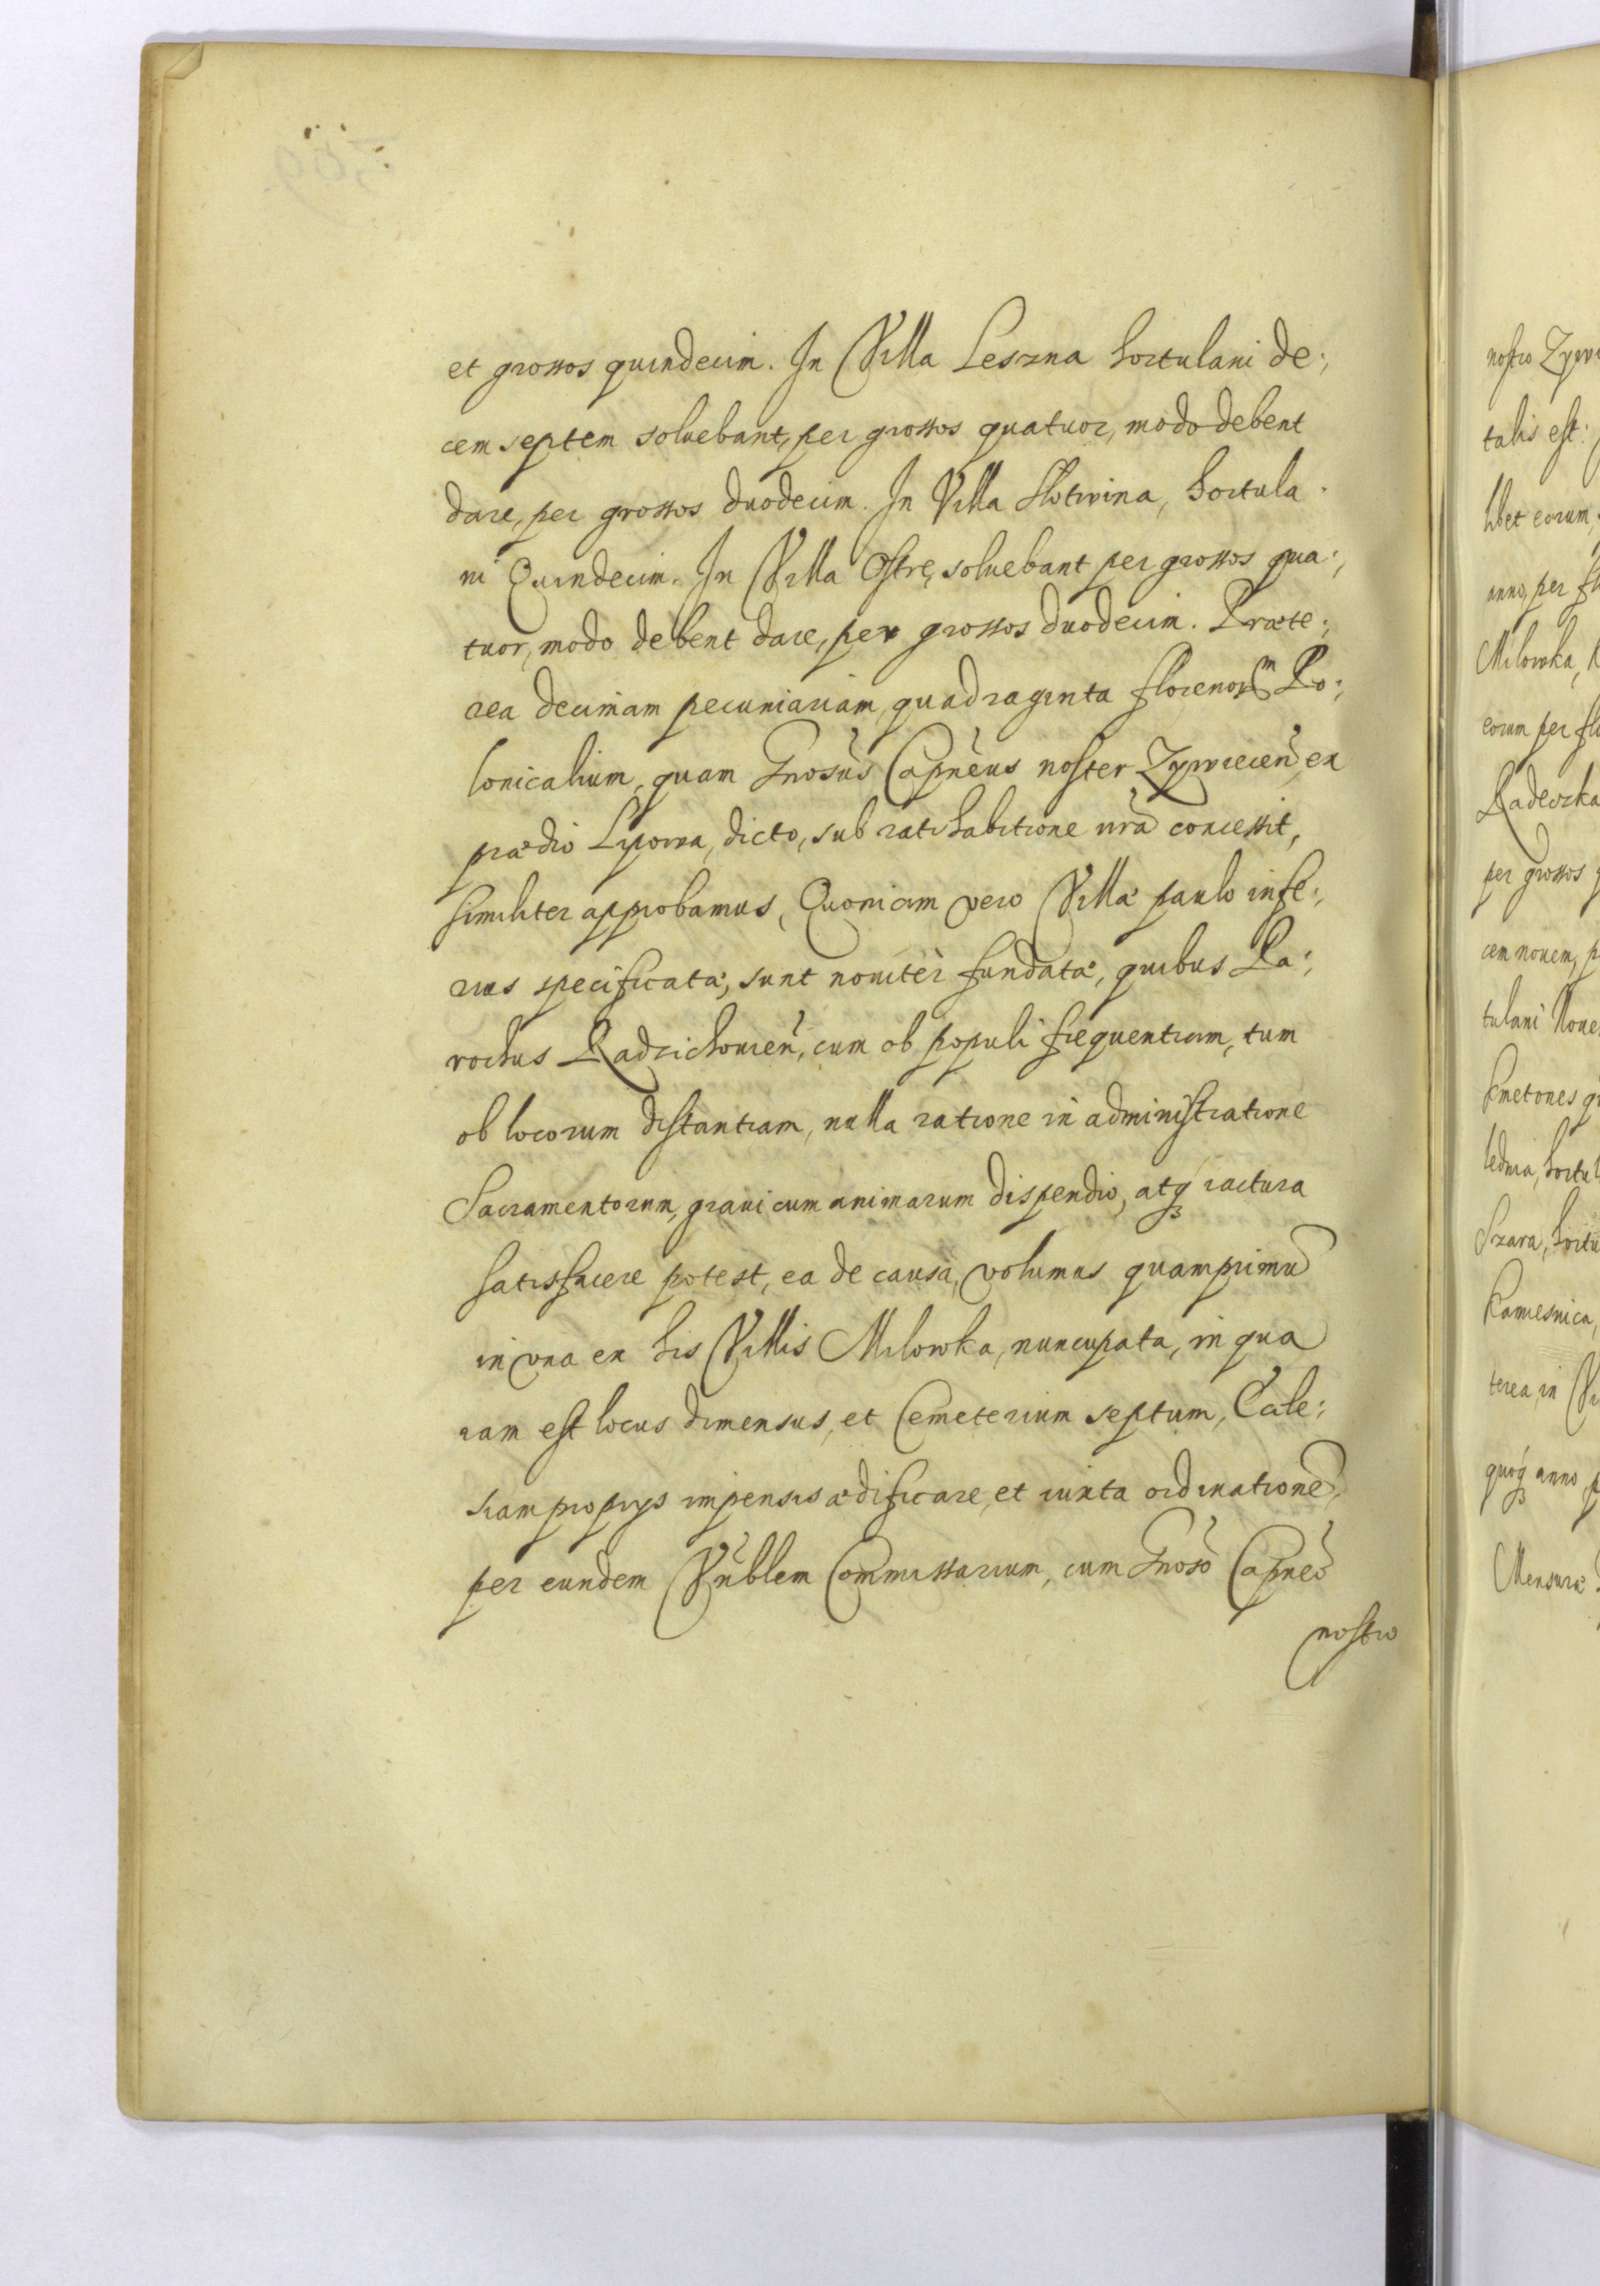 et grossos quindecim. In Villa Leszna hortulani de;
cem septem soluebant, per grossos quatuor, modo debent
dare, per grossos duodecim. In Villa Slotwina, hortula.
ni Quindecim. In Villa Ostre, soluebant per grossos qua;
tuor, modo debent dare, per grossos duodecim. Præte;
rea decimam pecuniariam, quadraginta florenorm Po;
lonicalium, quam Gnosus Capneus noster Zywiecen, ex
prædio Lipowa, dicto, sub ratihabitione nra concessit,
similiter approbamus, Quoniam vero Villæ paulo infe;
rius specificatæ, sunt nouiter fundatæ, quibus Pa;
rochus Radzichouien, cum ob populi frequentiam, tum
ob locorum distantiam, nulla ratione in administratione
Sacramentorum, graui cum animarum dispendio, atq iactura
satisfacere potest, ea de causa, volumus quamprimu
in vna ex his Villis Milowka, nuncupata, in qua
iam est locus dimensus, et Cemeterium septum, Eccle;
siam proprys impensis ædificare, et iuxta ordinatione,
per eundem Vnblem Commissarium, cum Gnoso Capneo
nostro
nostro Zywi
talis est:
libet eorum,
anno, per fl
Milowka,
eorum per flo
Radeczka
per grossos q
cem nouem, p
tulani Noue
Kmetones q
lednia, hortul
Szara, hortu
Kamesnica,
terea, in Vi
quoq anno, p
Mensuræ